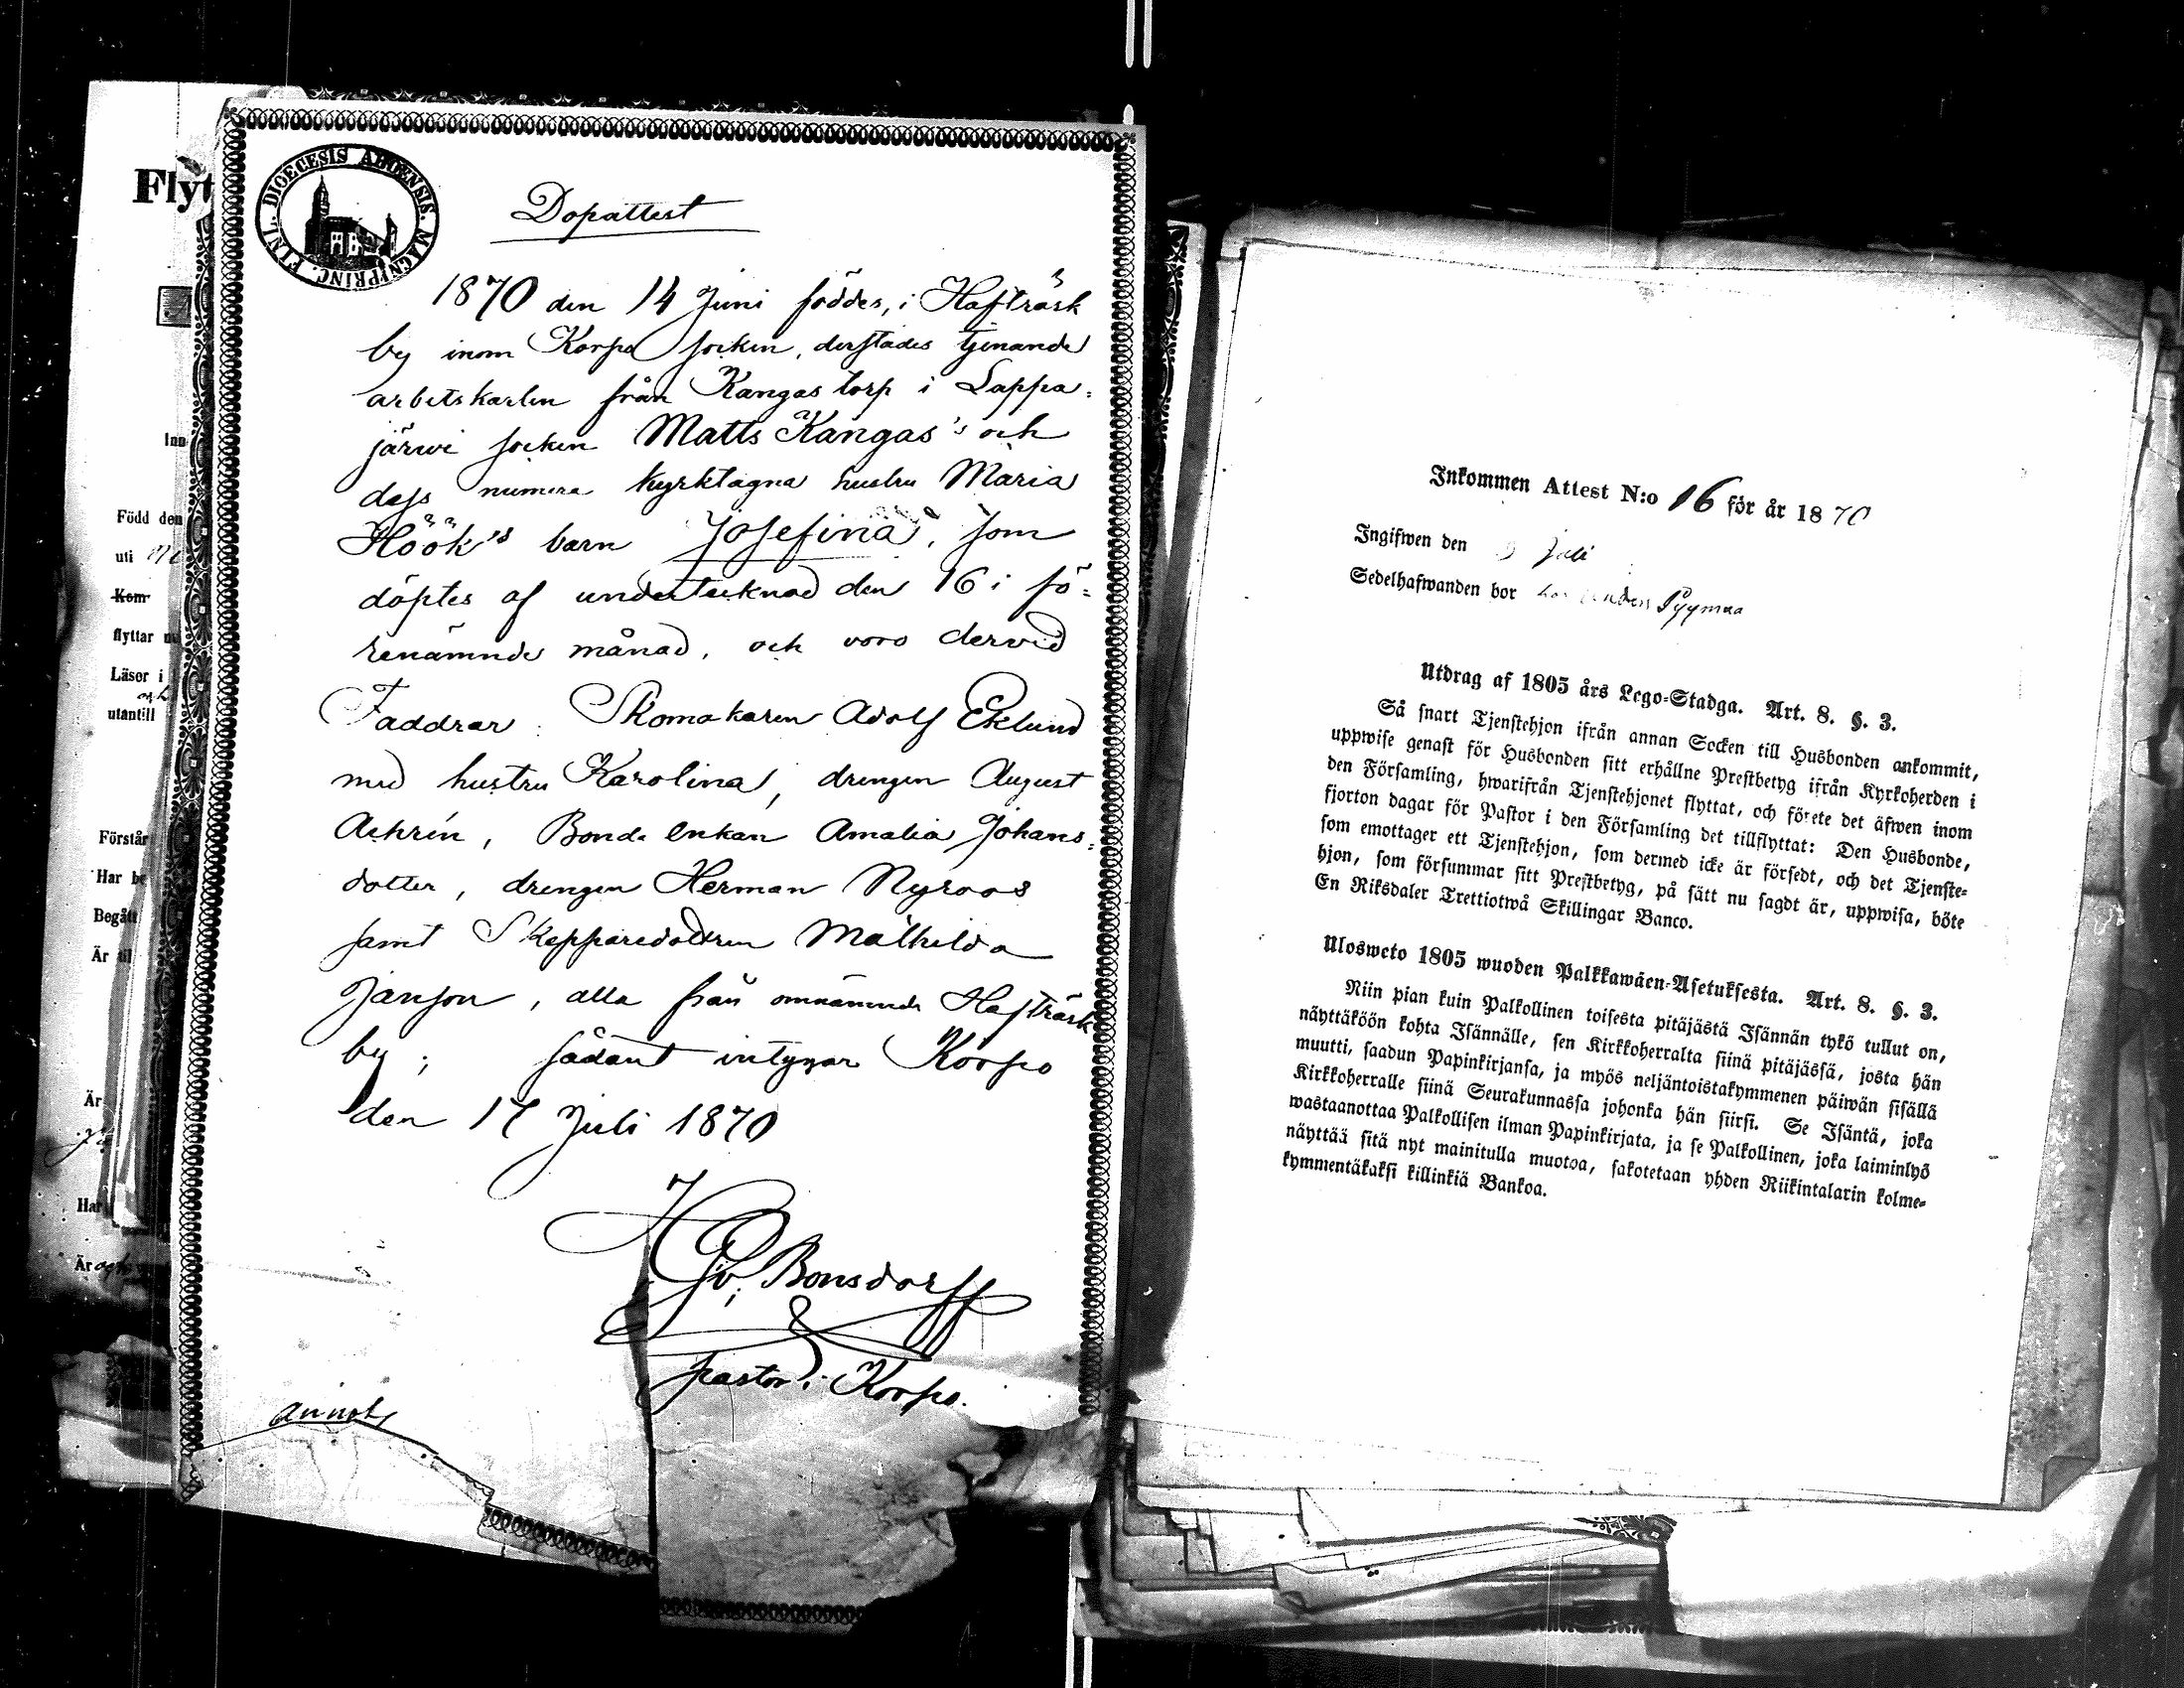 Flyt
Inn
Född den
uti
Kom
flyttar
Läser i
och
utantill
Förstår
Har be
Begått
Är til
Är
Har
Är
DIOECESIS ABOENSIS. MAGNI PRINC. FINL.
Dopattest
1870 den 14 Juni föddes, i Hafträsk
by inom Korpo socken, derstädes tjenande
arbetskarlen från Kangas torp i Lappa=
järwi socken Matts Kangas's och
dess numera kyrktagna hustru Maria
Höök's barn Josefina, som
döptes af undertecknad den 16 i fö=
renämnde månad, och voro dervid
Faddrar: Skomakaren Adolf Eklund
med hustru Karolina, drengen August
Achrén, Bonde enkan Amalia Johans=
dotter, drengen Herman Nyroos
samt Skepparedottren Mathilda
Janson, alla från omnämnde Hafträsk
by; sådant intygar Korpo
den 17 Juli 1870
Bonsdorff
pastor i Korpo.
annot,
Inkommen Attest N:o 16 för år 1870
Ingifwen den Juli
Sedelhafwanden bor Pyymaa
Utdrag af 1805 års Lego-Stadga. Art. 8. §. 3.
Så snart Tjenstehjon ifrån annan Socken till Husbonden ankommit,
uppwise genast för Husbonden sitt erhållne Prestbetyg ifrån Kyrkoherden i
den Församling, hwarifrån Tjenstehjonet flyttat, och förete det äfwen inom
fjorton dagar för Pastor i den Församling det tillflyttat: Den Husbonde,
som emottager ett Tjenstehjon, som dermed icke är försedt, och det Tjenste-
hjon, som försummar sitt Prestbetyg, på sätt nu sagdt är, uppwisa, böte
En Riksdaler Trettiotwå Skillingar Banco.
Ulosweto 1805 wuoden Palkkawäen-Asetuksesta. Art. 8. §. 3.
Niin pian kuin Palkollinen toisesta pitäjästä Isännän tykö tullut on,
näyttäköön kohta Isännälle, sen Kirkkoherralta siinä pitäjässä, josta hän
muutti, saadun Papinkirjansa, ja myös neljäntoistakymmenen päiwän sisällä
Kirkkoherralle siinä Seurakunnassa johonka hän siirsi. Se Isäntä, joka
wastaanottaa Palkollisen ilman Papinkirjata, ja se Palkollinen, joka laiminlyö
näyttää sitä nyt mainitulla muotoa, sakotetaan yhden Riikintalarin kolme-
kymmentäkaksi killinkiä Bankoa.